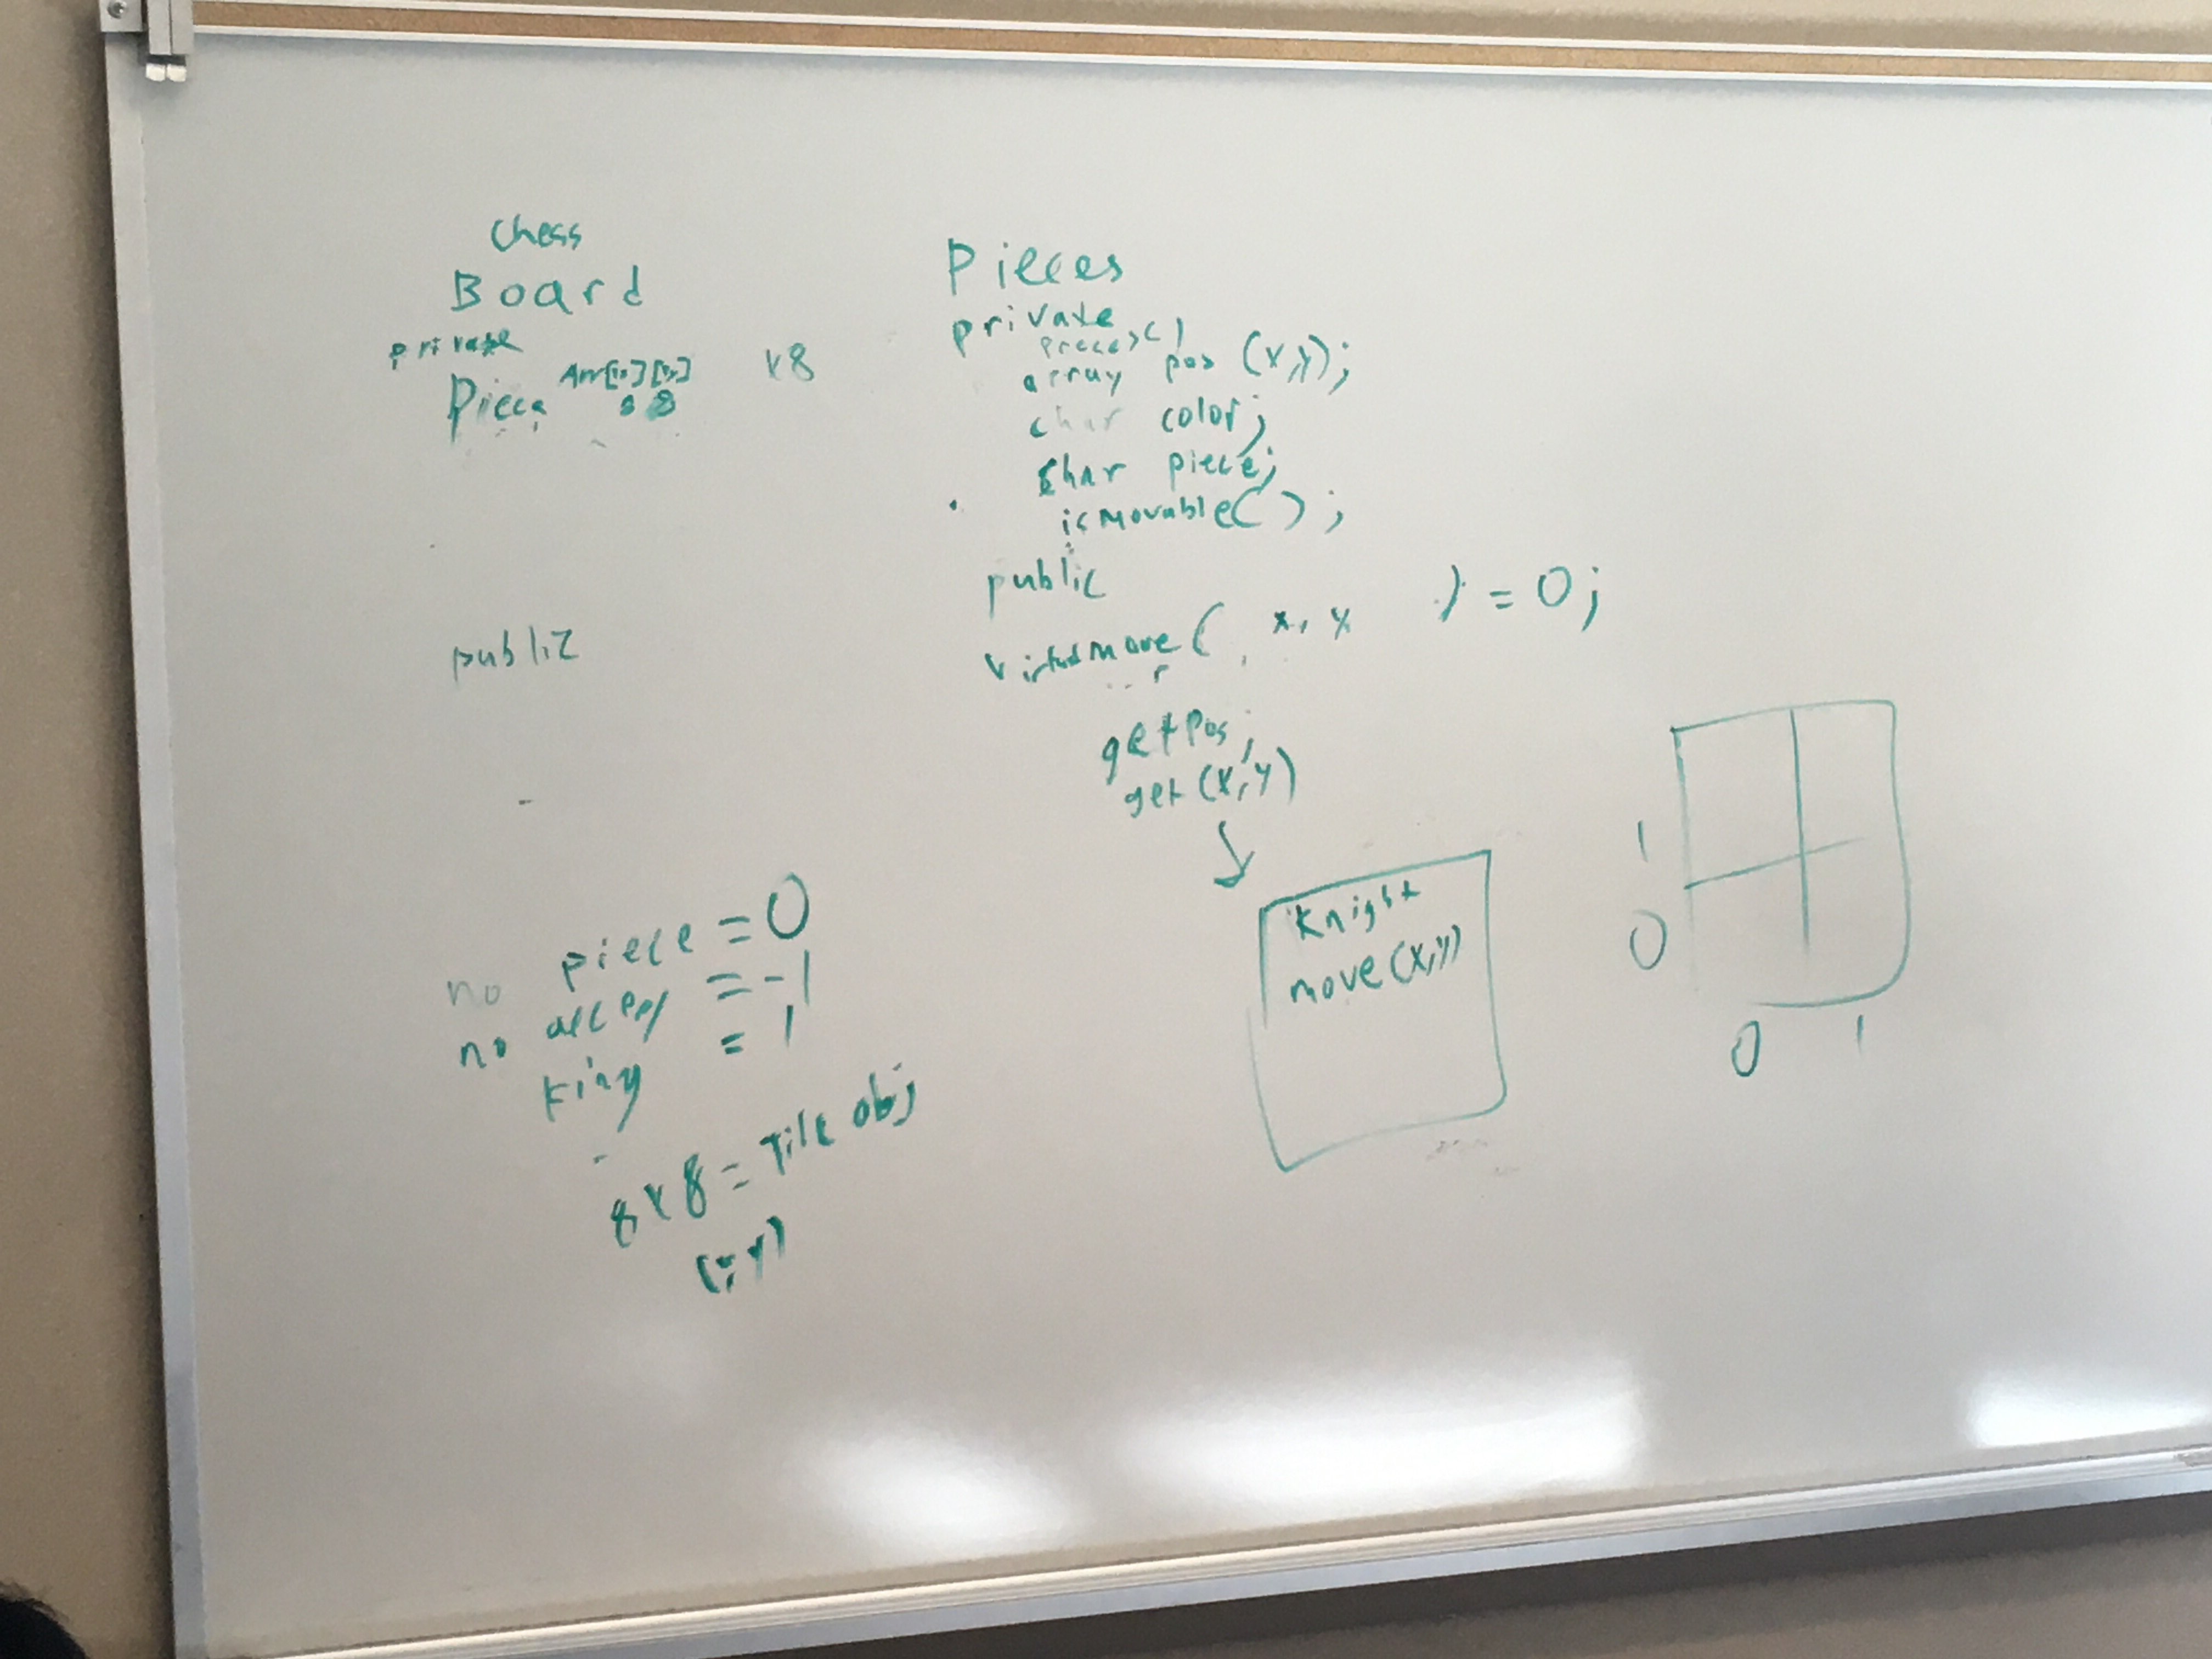 Chess
Board
private
Piece Arr[][]
8 8
x8
public
no piece = 0
no = -1
king = 1
8x8 = Tile obj
Pieces
private
array pos (x,y);
char color;
char piece;
ismovable();
public
virtual move( x, y ) = 0;
getPos;
get(x,y)
Knight
move(x,y)
1
0
0 1